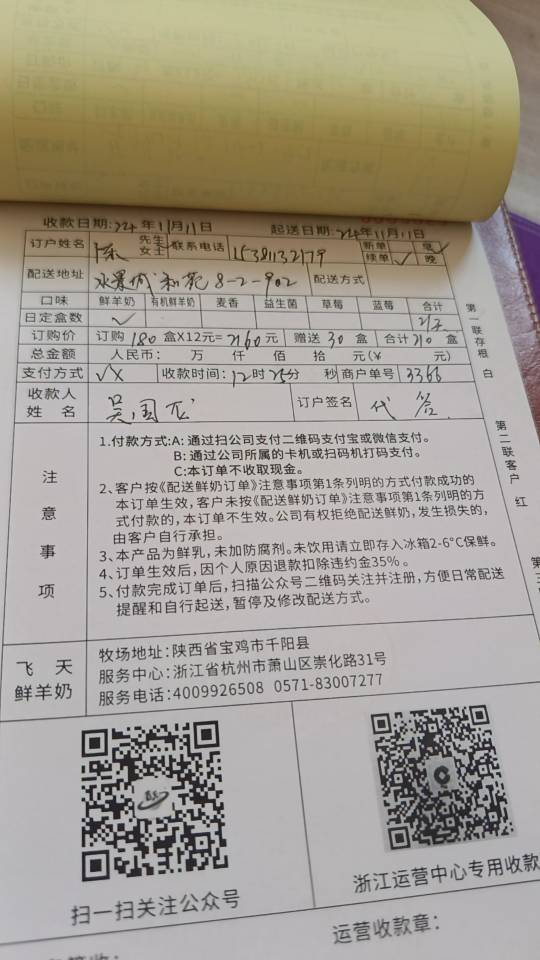 收款日期:224年11月11日 起送日期:224年11月11日
订户姓名 陈 先生 女士 联系电话 15381132179 新单 续单 ✓ 早 ✓ 晚
配送地址 水景城和苑8-2-902 配送方式
口味 鲜羊奶 有机鲜羊奶 麦香 益生菌 草莓 蓝莓 合计
日定盒数 ✓
订购价 订购180盒X12元=2160元 赠送30盒 合计210盒
总金额 人民币: 万 仟 佰 拾 元(¥ 元)
支付方式 收款时间:12时25分 秒 商户单号 3366
收款人姓名 吴国 订户签名 代签
注意事项
1.付款方式:A: 通过扫公司支付二维码支付宝或微信支付。
B: 通过公司所属的卡机或扫码机打码支付。
C:本订单不收取现金。
2、客户按《配送鲜奶订单》注意事项第1条列明的方式付款成功的
本订单生效,客户未按《配送鲜奶订单》注意事项第1条列明的方
式付款的,本订单不生效。公司有权拒绝配送鲜奶,发生损失的,
由客户自行承担。
3、本产品为鲜乳,未加防腐剂。未饮用请立即存入冰箱2-6°C保鲜。
4、订单生效后,因个人原因退款扣除违约金35%。
5、付款完成订单后,扫描公众号二维码关注并注册,方便日常配送
提醒和自行起送,暂停及修改配送方式。
飞天
鲜羊奶
牧场地址:陕西省宝鸡市千阳县
服务中心:浙江省杭州市萧山区崇化路31号
服务电话:4009926508 0571-83007277
扫一扫关注公众号
浙江运营中心专用收款
运营收款章:
第一联存根 白
第二联客户 红